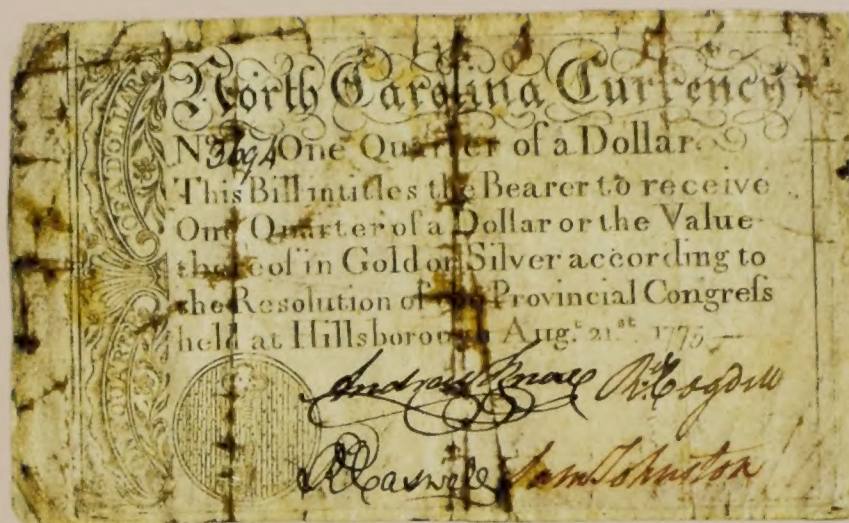 North Carolina Currency
No 3694 One Quarter of a Dollar.
This Bill intitles the Bearer to receive
One Quarter of a Dollar or the Value
thereof in Gold or Silver according to
the Resolution of the Provincial Congreſs
held at Hillsborough Aug.t 21st. 1775
Andrew Knox Rd. Cogdell
R Caswell Sam Johnston
QUARTER OF A DOLLAR